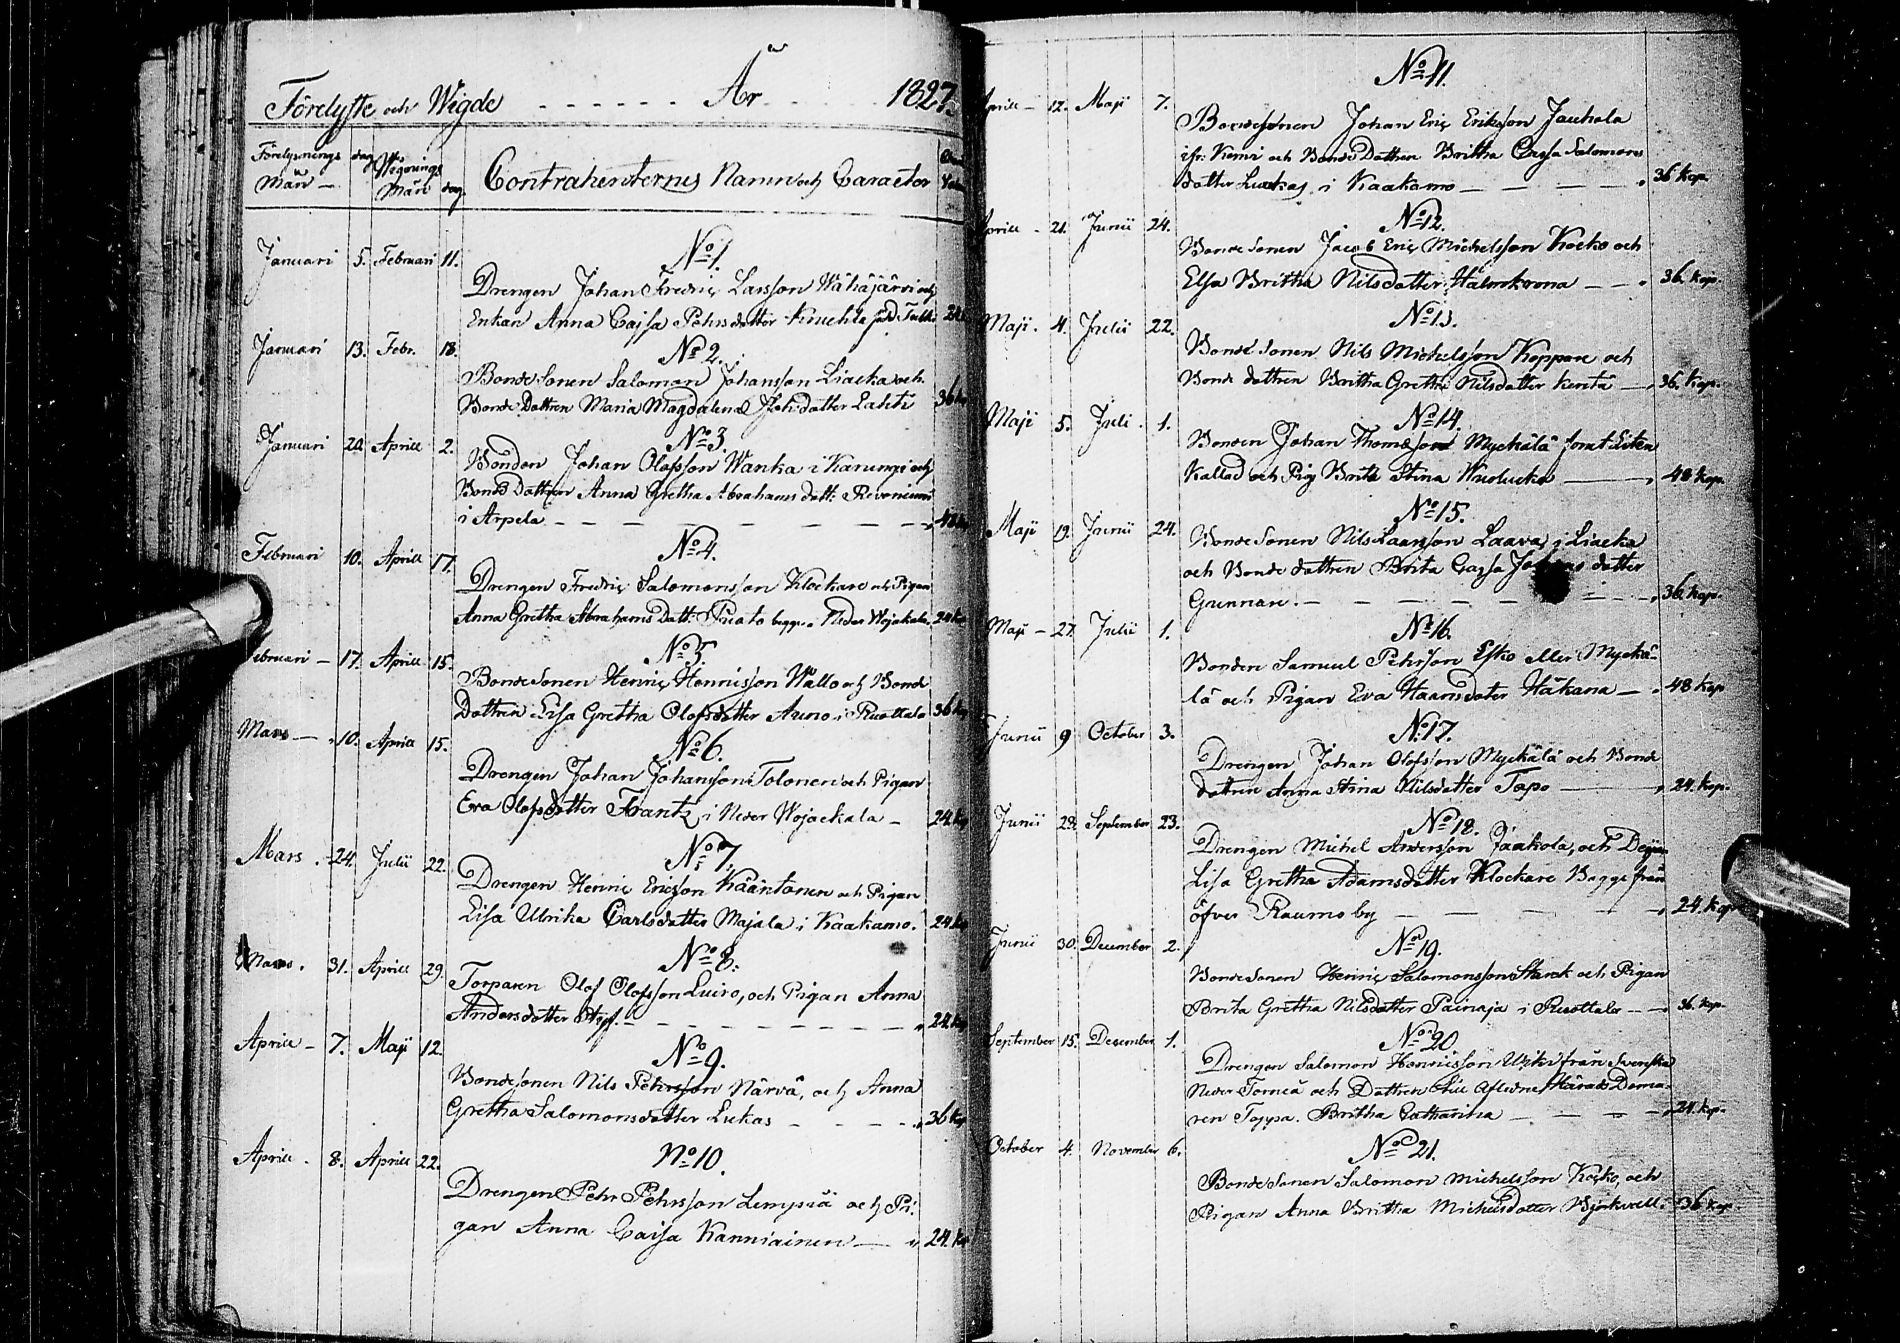 Förelyste och Wigde - - - - - - År - - - - 1827.
Förelysnings dag Wignings
Mån — Mån dag Contrahenternes Namn och Caracter
Januari 5. Februari 11. No 1.
Drengen Johan Fredric Larsson Wähäjärvi och
Enkan Anna Cajsa Pehrsdotter
Januari 13. Febr. 18. No 2.
Bondesonen Salomon Johansson Liacka och
Bonde Dottren Maria Magdalena Johsdotter Lahti 36
Januari 20. Aprill 2. No 3.
Bonden Johan Olofsson Wanka i Karungi och
Bonde Dottren Anna Gretha Abrahams dott:
i Arpela — — — 48
Februari 10. Aprill 17. No 4.
Drengen Fredric Salomonsson Klockare och Pigan
Anna Gretha Abrahams Dott: begge i Neder Wojakala. 24 kop
Februari — 17. Aprill 15. No 5
Bondesonen Henric Henricsson Wallo och Bonde
Dottren Lisa Gretha Olofsdotter Auno i Ruottala 36 kop
Mars — 10. Aprill 15. No 6.
Drengen Johan Johansson Tolonen och Pigan
Eva Olofsdotter Frantz, i Neder Wojackala — 24 kop
Mars. 24. Julii 22. No 7.
Drengen Henric Ericsson Kääntönen och Pigan
Lisa Ulrika Carlsdotter Majala i Kaakamo. 24 kop
Mars. 31. Aprill 29. No 8.
Torparen Olof Olofsson Luiro, och Pigan Anna
Andersdotter — — — 24 kop
Aprill — 7. Maji 12. No 9.
Bondesonen Nils Pehrsson Närvä, och Anna
Gretha Salomonsdotter Lukas — — — 36 kop
Aprill. 8. Aprill 22. No 10.
Drengen Pehr Pehrsson Lempiä och Pi-
gan Anna Caisa Kanniainen — 24. kop
No 11.
Aprill — 12. Maji 7.
Bondesonen Johan Eric Eriksson Jauhola
ifr. Kemi och Bonde Dottren Britha Cajsa Salomons
dotter Luckas, i Kaakamo — — — 36 kop.
Aprill — 21. Junii 24. No 12.
Bonde Sonen Jacob Eric Michelsson Kocko och
Elsa Britha Nilsdotter Halmkrona — — 36. kop.
Maji. 4. Julii 22. No 13.
Bonde Sonen Nils Michelsson Koppare och
Bonde dottren Britha Gretha Nilsdotter — 36. kop.
Maji 5. Juli. 1. No 14.
Bonden Johan Thomasson Myckälä
Kallad och Pig Britta Stina — 48 kop.
Maji 19. Junii 24. No 15.
Bonde Sonen Nils Laarsson Laava, i Liacka
och Bonde dottren Brita Cajsa Johans dotter
Gunnari. — — — 36. kop.
Maji — 27. Julii 1. No 16.
Bonden Samuel Pehrsson Esko eller Myckä-
lä och Pigan Eva Haansdoter Häkana — 48 kop
Junii 9 October 3. No 17.
Drengen Johan Olofsson Myckälä och Bonde
dotren Anna Stina Nilsdotter Tapo — 24. kop.
Junii 23. September 23. No 18.
Drengen Michel Andersson Jaakola, och Deijan
Lisa Gretha Adamsdotter Klockare Begge från
öfver Raumo by — — — 24. kop
Junii 30. December 2. No 19.
Bonde Sonen Henric Salomonsson Starck och Pigan
Brita Gretha Nilsdotter Painaja i Ruottala — 36. kop.
September 15. December 1. No 20
Drengen Salomon Henricsson från Svenska
Neder Torneå och Dottren till Aflidne Härads Doma-
ren Toppa. Britha Catharina — — — 24. kop.
October 4. November 6. No 21.
Bonde Sonen Salomon Michelsson Kocko, och
Pigan Anna Britha Michelsdotter Björkvall. 36 kop.